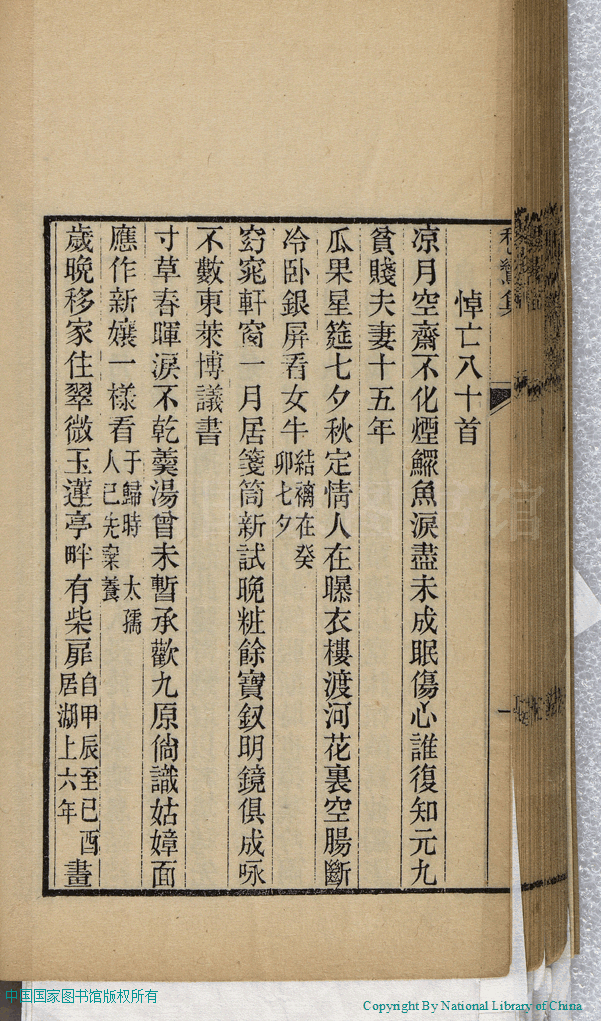 悼亡八十首
凉月空齋不化煙鰥魚淚盡未成眠傷心誰復知元九
貧賤夫妻十五年
瓜果星筵七夕秋定情人在曝衣樓渡河花裏空腸斷
冷卧銀屏看女牛結褵在癸卯七夕
窈窕軒窗一月居箋筒新試晚粧餘寶釵明鏡俱成咏
不數東萊博議書
寸草春暉淚不乾羹湯曾未暫承歡九原倘識姑嫜面
應作新孃一樣看于歸時太孺人已先棄養
歲晚移家住翠微玉蓮亭畔有柴扉自甲辰至己酉居湖上六年畫
一
中国国家图书馆版权所有
Copyright By National Library of China